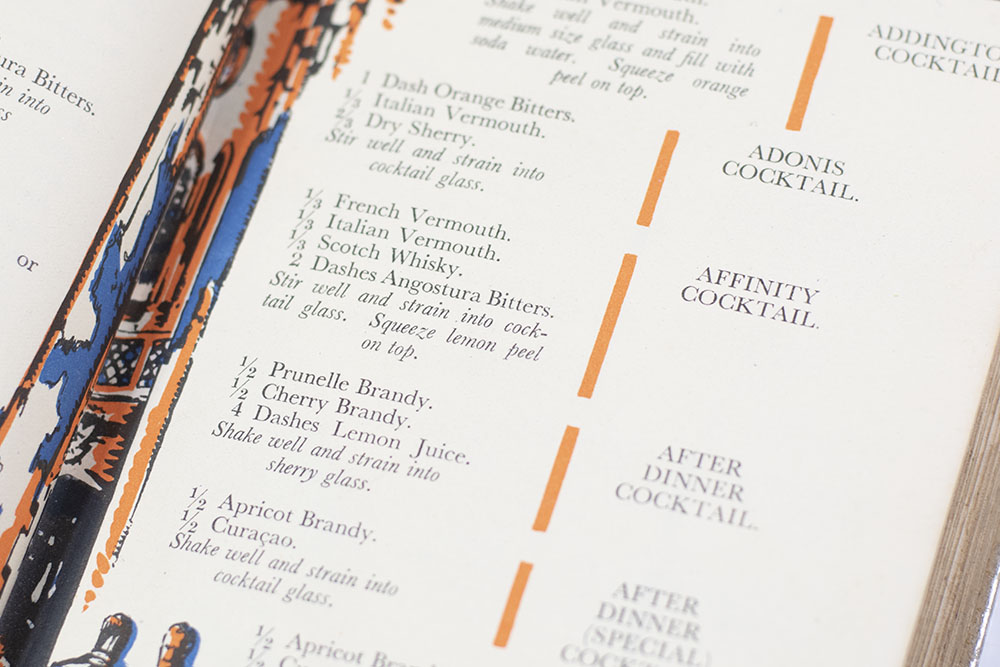 ura Bitters.
in into
or
Vermouth.
Shake well and strain into
medium size glass and fill with
soda water. Squeeze orange
peel on top.
ADDINGTO
COCKTAIL
1 Dash Orange Bitters.
⅓ Italian Vermouth.
⅔ Dry Sherry.
Stir well and strain into
cocktail glass.
ADONIS
COCKTAIL.
⅓ French Vermouth.
⅓ Italian Vermouth.
⅓ Scotch Whisky.
2 Dashes Angostura Bitters.
Stir well and strain into cock-
tail glass. Squeeze lemon peel
on top.
AFFINITY
COCKTAIL.
½ Prunelle Brandy.
½ Cherry Brandy.
4 Dashes Lemon Juice.
Shake well and strain into
sherry glass.
AFTER
DINNER
COCKTAIL.
½ Apricot Brandy.
½ Curaçao.
Shake well and strain into
cocktail glass.
AFTER
DINNER
(SPECIAL)
COCKTAIL
½ Apricot Brandy.